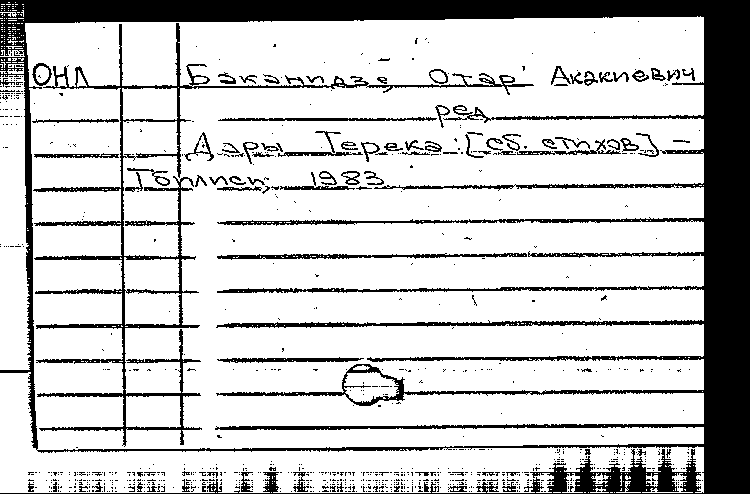 ОНЛ Баканидзе, Отар Акакиевич
ред
Дары Терека: [сб. стихов] –
Тбилиси, 1983